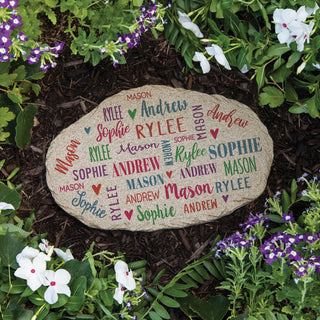 MASON
RYLEE Andrew MASON
Sophie RYLEE Andrew
Mason RYLEE SOPHIE Rylee SOPHIE
MASON Sophie ANDREW
Andrew
SOPHIE MASON ANDREW Mason RYLEE
Sophie RYLEE MASON
Sophie ANDREW